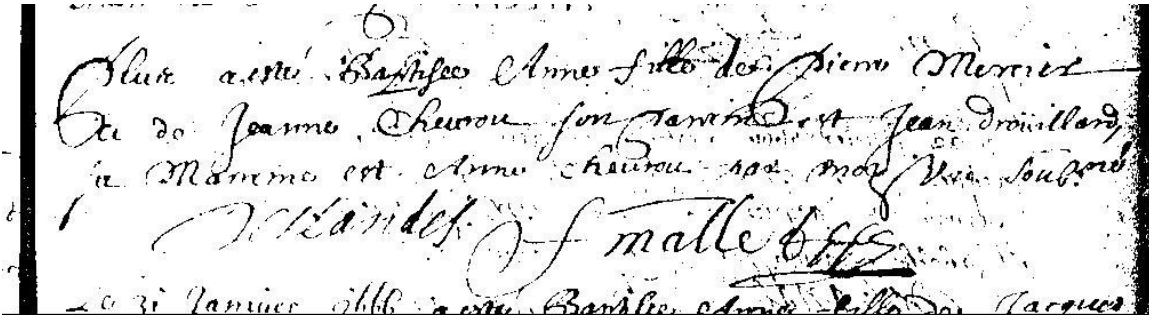 Plus a esté Baptisee Anne fille de Pierre Mercier
Et de Jeanne Cheurou son Parrein est Jean Drouillard,
sa Mareine est Anne Cheurou par moy Vic. soubs.né
F maille
Le 31 Januier 1666 a esté Baptisée Anne fille de Jacques